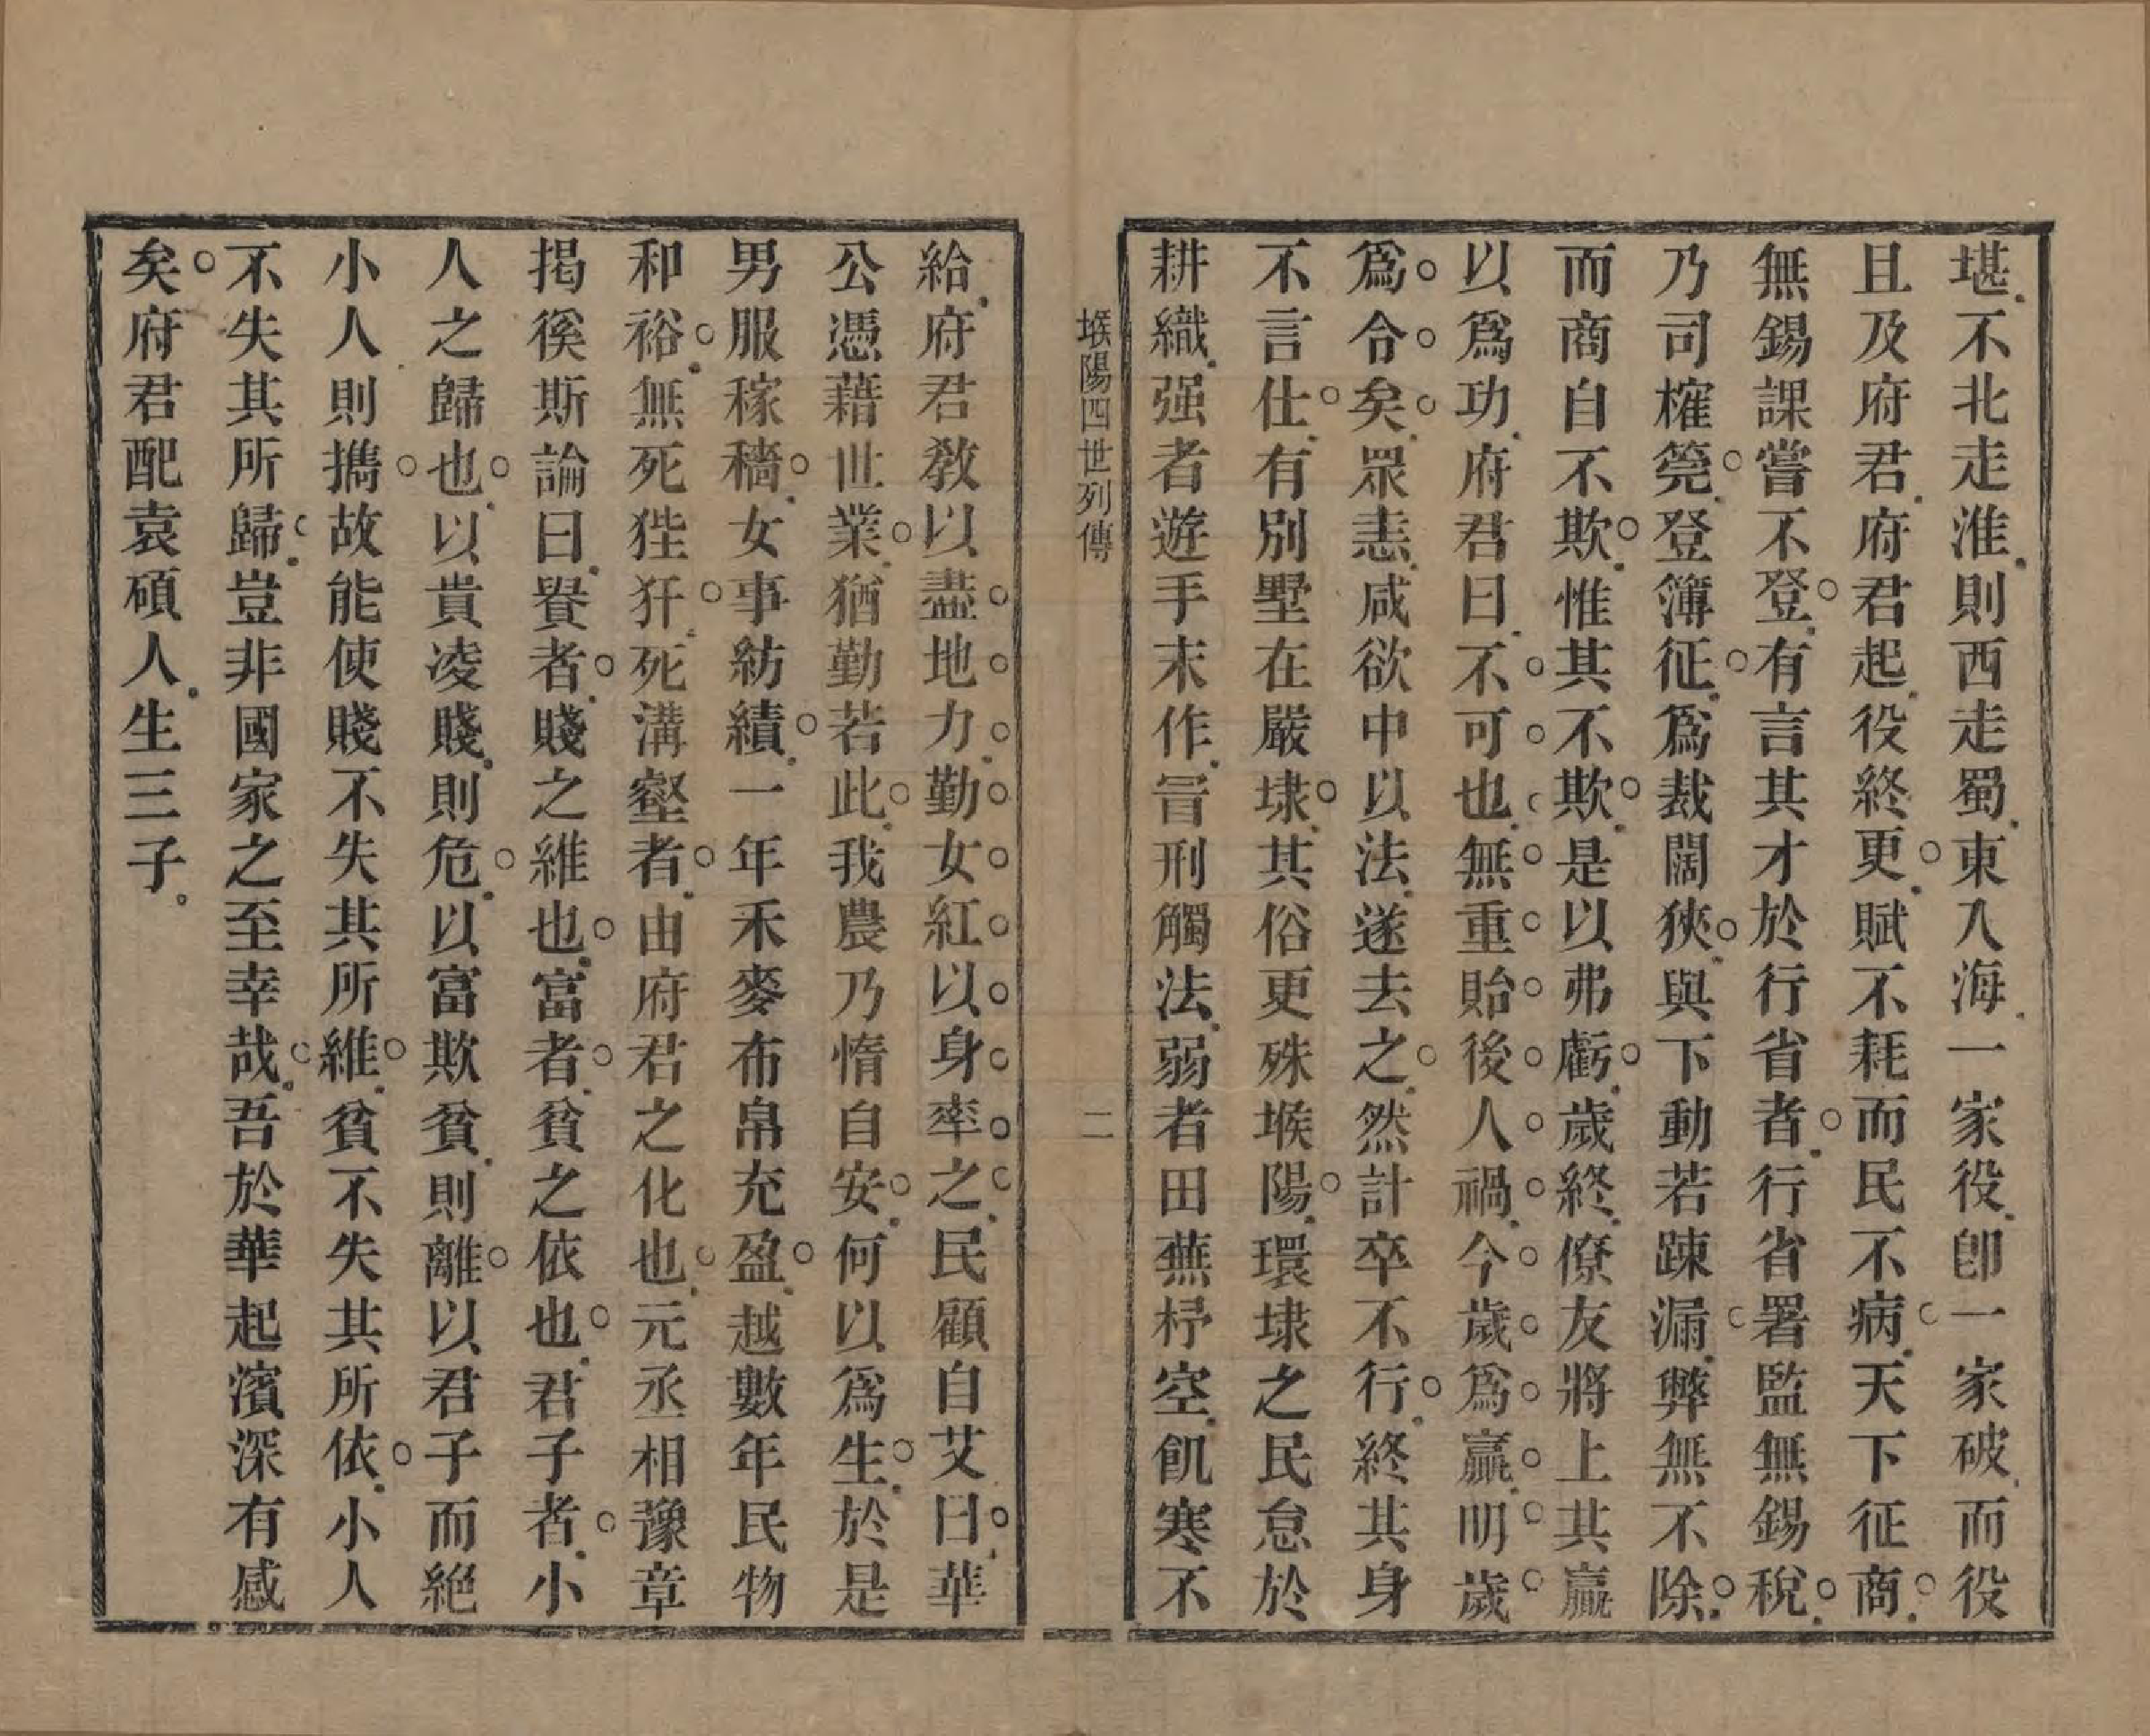 堪不北走淮則西走蜀東入海一家役卽一家破而役
且及府君府君起役終更賦不耗而民不病天下征商
無錫課嘗不登有言其才於行省者行省署監無錫稅
乃司榷筦登簿征爲裁闊狹與下動若踈漏弊無不除
而商自不欺惟其不欺是以弗虧歲終僚友將上其贏
以爲功府君曰不可也無重貽後人禍今歲爲贏明歲
爲令矣眾恚咸欲中以法遂去之然計卒不行終其身
不言仕有別墅在嚴埭其俗更殊堠陽環埭之民怠於
耕織强者遊手末作冒刑觸法弱者田蕪杼空飢寒不
堠陽四世列傳
二
給府君敎以盡地力勤女紅以身率之民顧自艾曰華
公憑藉世業猶勤若此我農乃惰自安何以爲生於是
男服稼穡女事紡績一年禾麥布帛充盈越數年民物
和裕無死狴犴死溝壑者由府君之化也元丞相豫章
揭徯斯論曰貴者賤之維也富者貧之依也君子者小
人之歸也以貴凌賤則危以富欺貧則離以君子而絕
小人則攜故能使賤不失其所維貧不失其所依小人
不失其所歸豈非國家之至幸哉吾於華起濱深有感
矣府君配袁碩人生三子